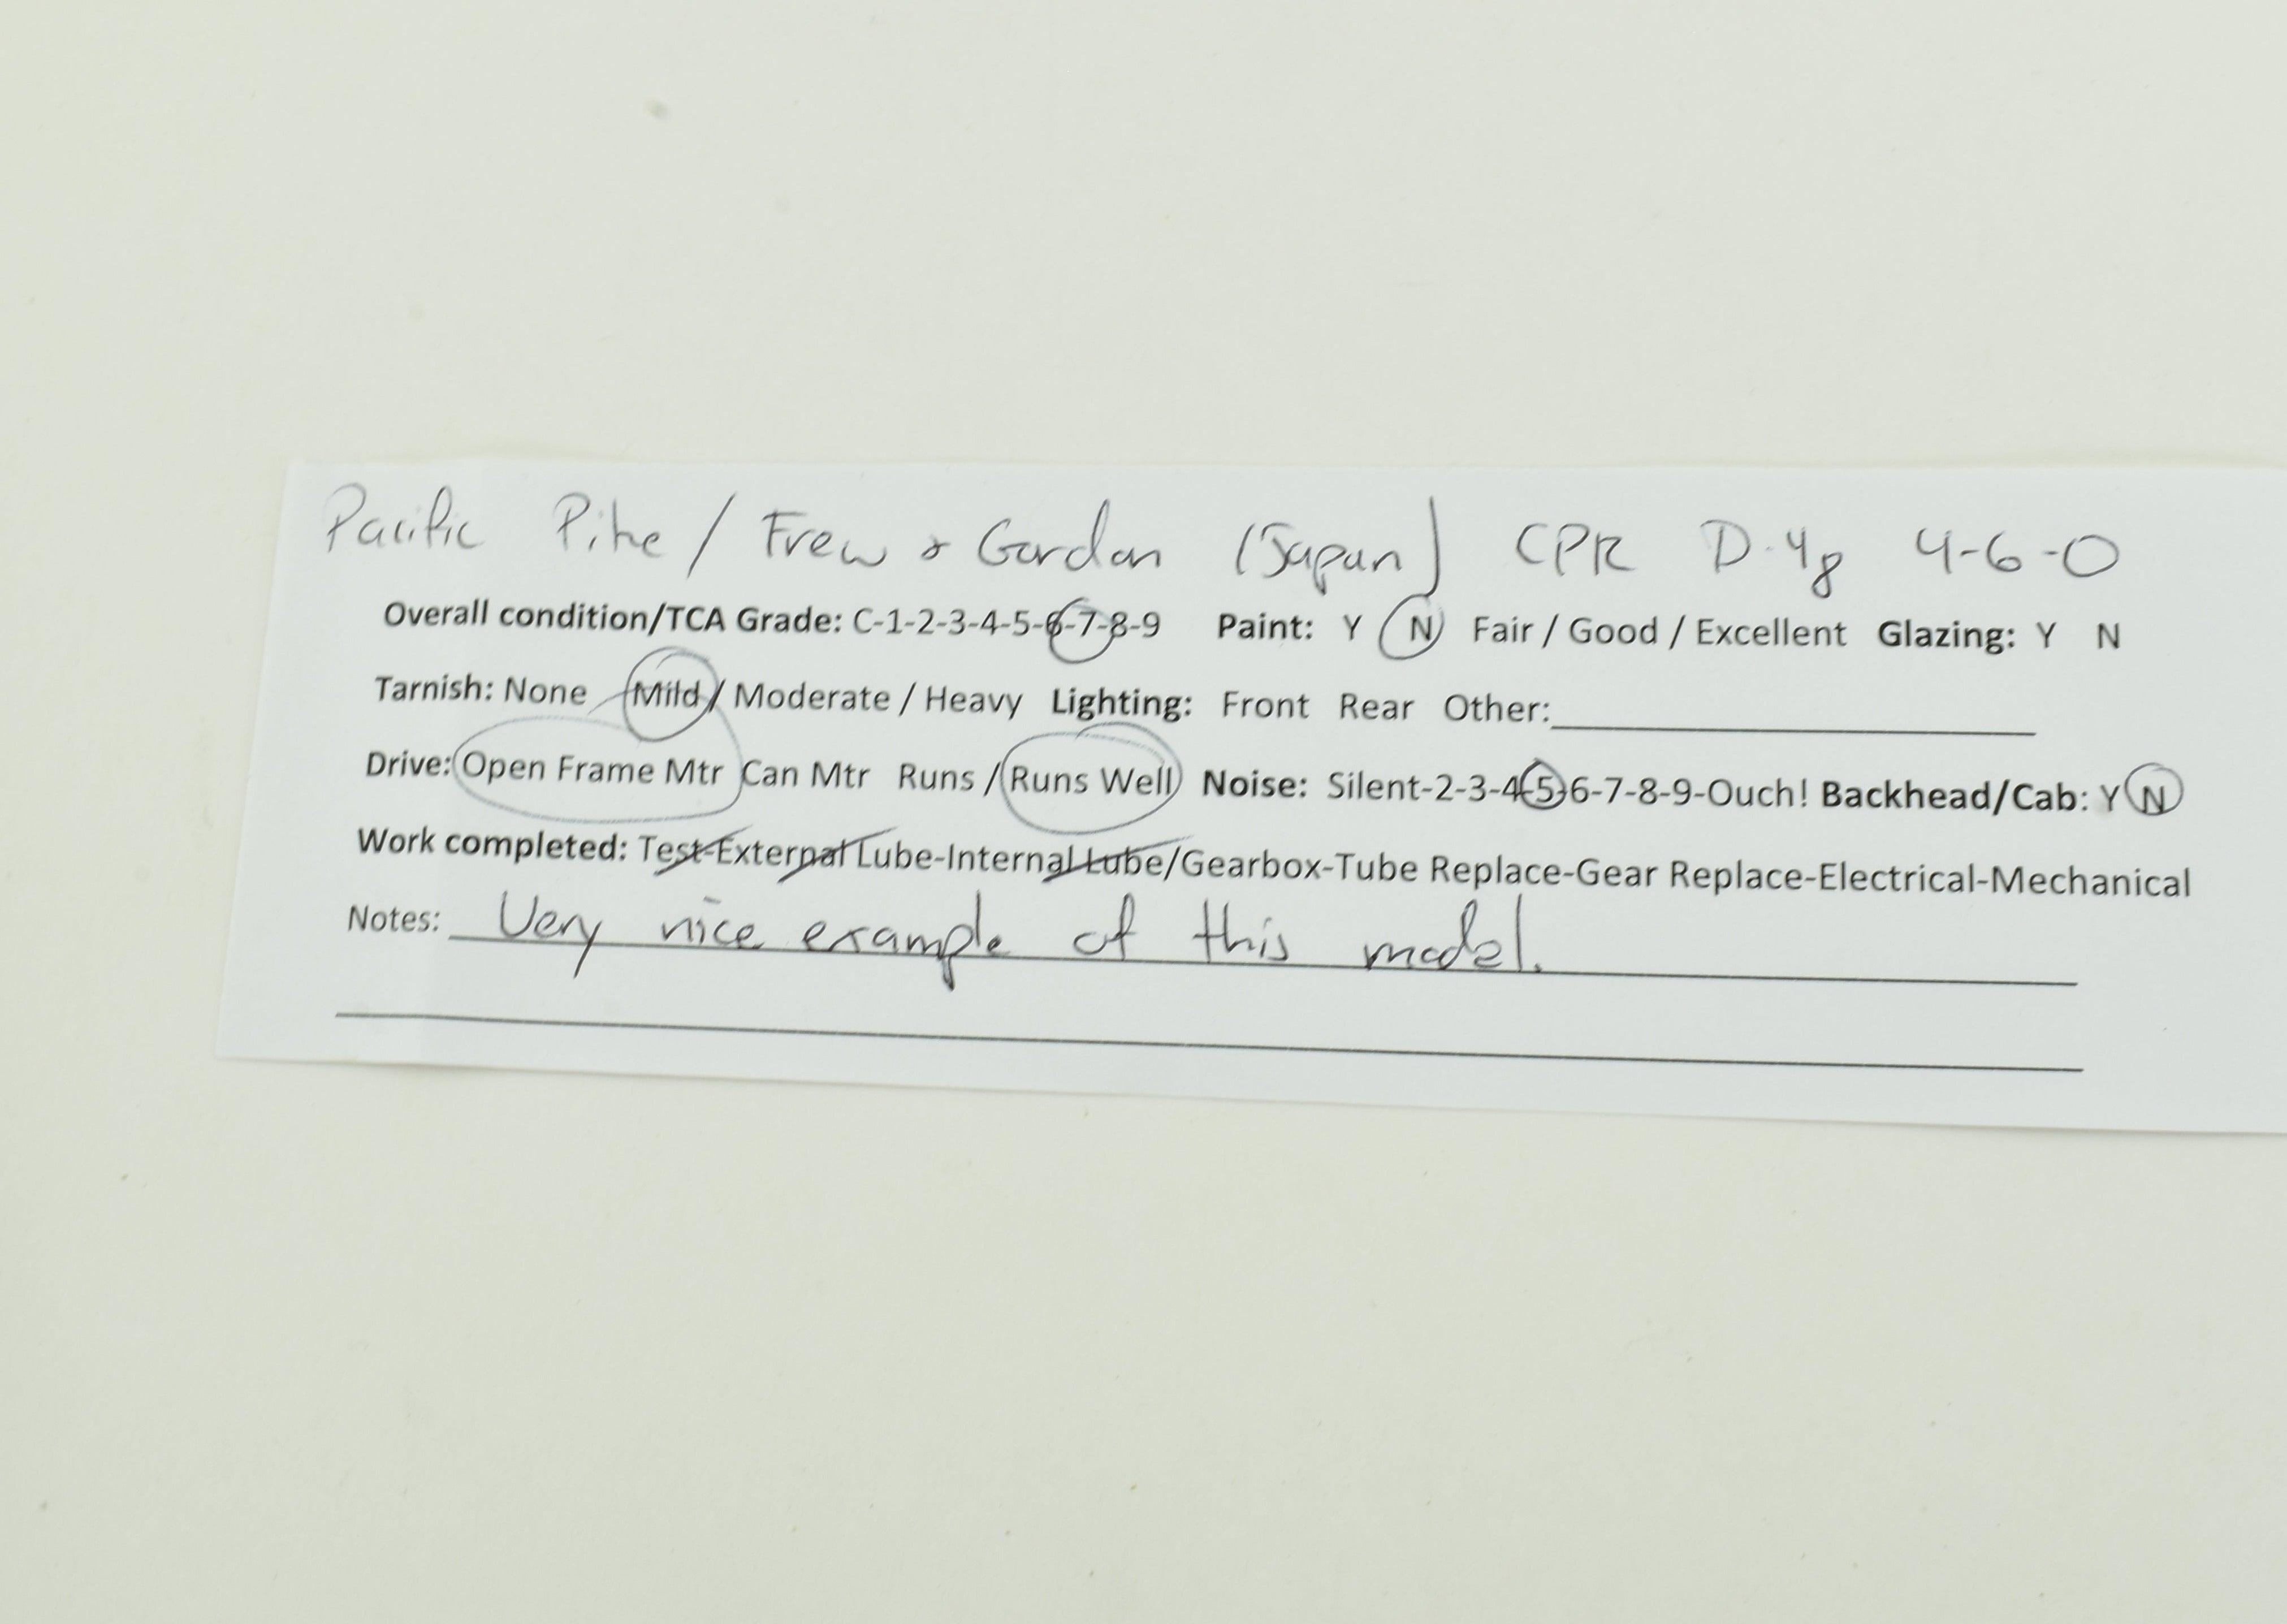 Pacific Pike / Frew & Gordon (Japan) CPR D-4g 4-6-0
Overall condition/TCA Grade: C-1-2-3-4-5-6-7-8-9 Paint: Y N Fair / Good / Excellent Glazing: Y N
Tarnish: None / Mild / Moderate / Heavy Lighting: Front Rear Other:
Drive: Open Frame Mtr Can Mtr Runs / Runs Well Noise: Silent-2-3-4-5-6-7-8-9-Ouch! Backhead/Cab: Y N
Work completed: Test-External Lube-Internal Lube/Gearbox-Tube Replace-Gear Replace-Electrical-Mechanical
Notes: Very nice example of this model.